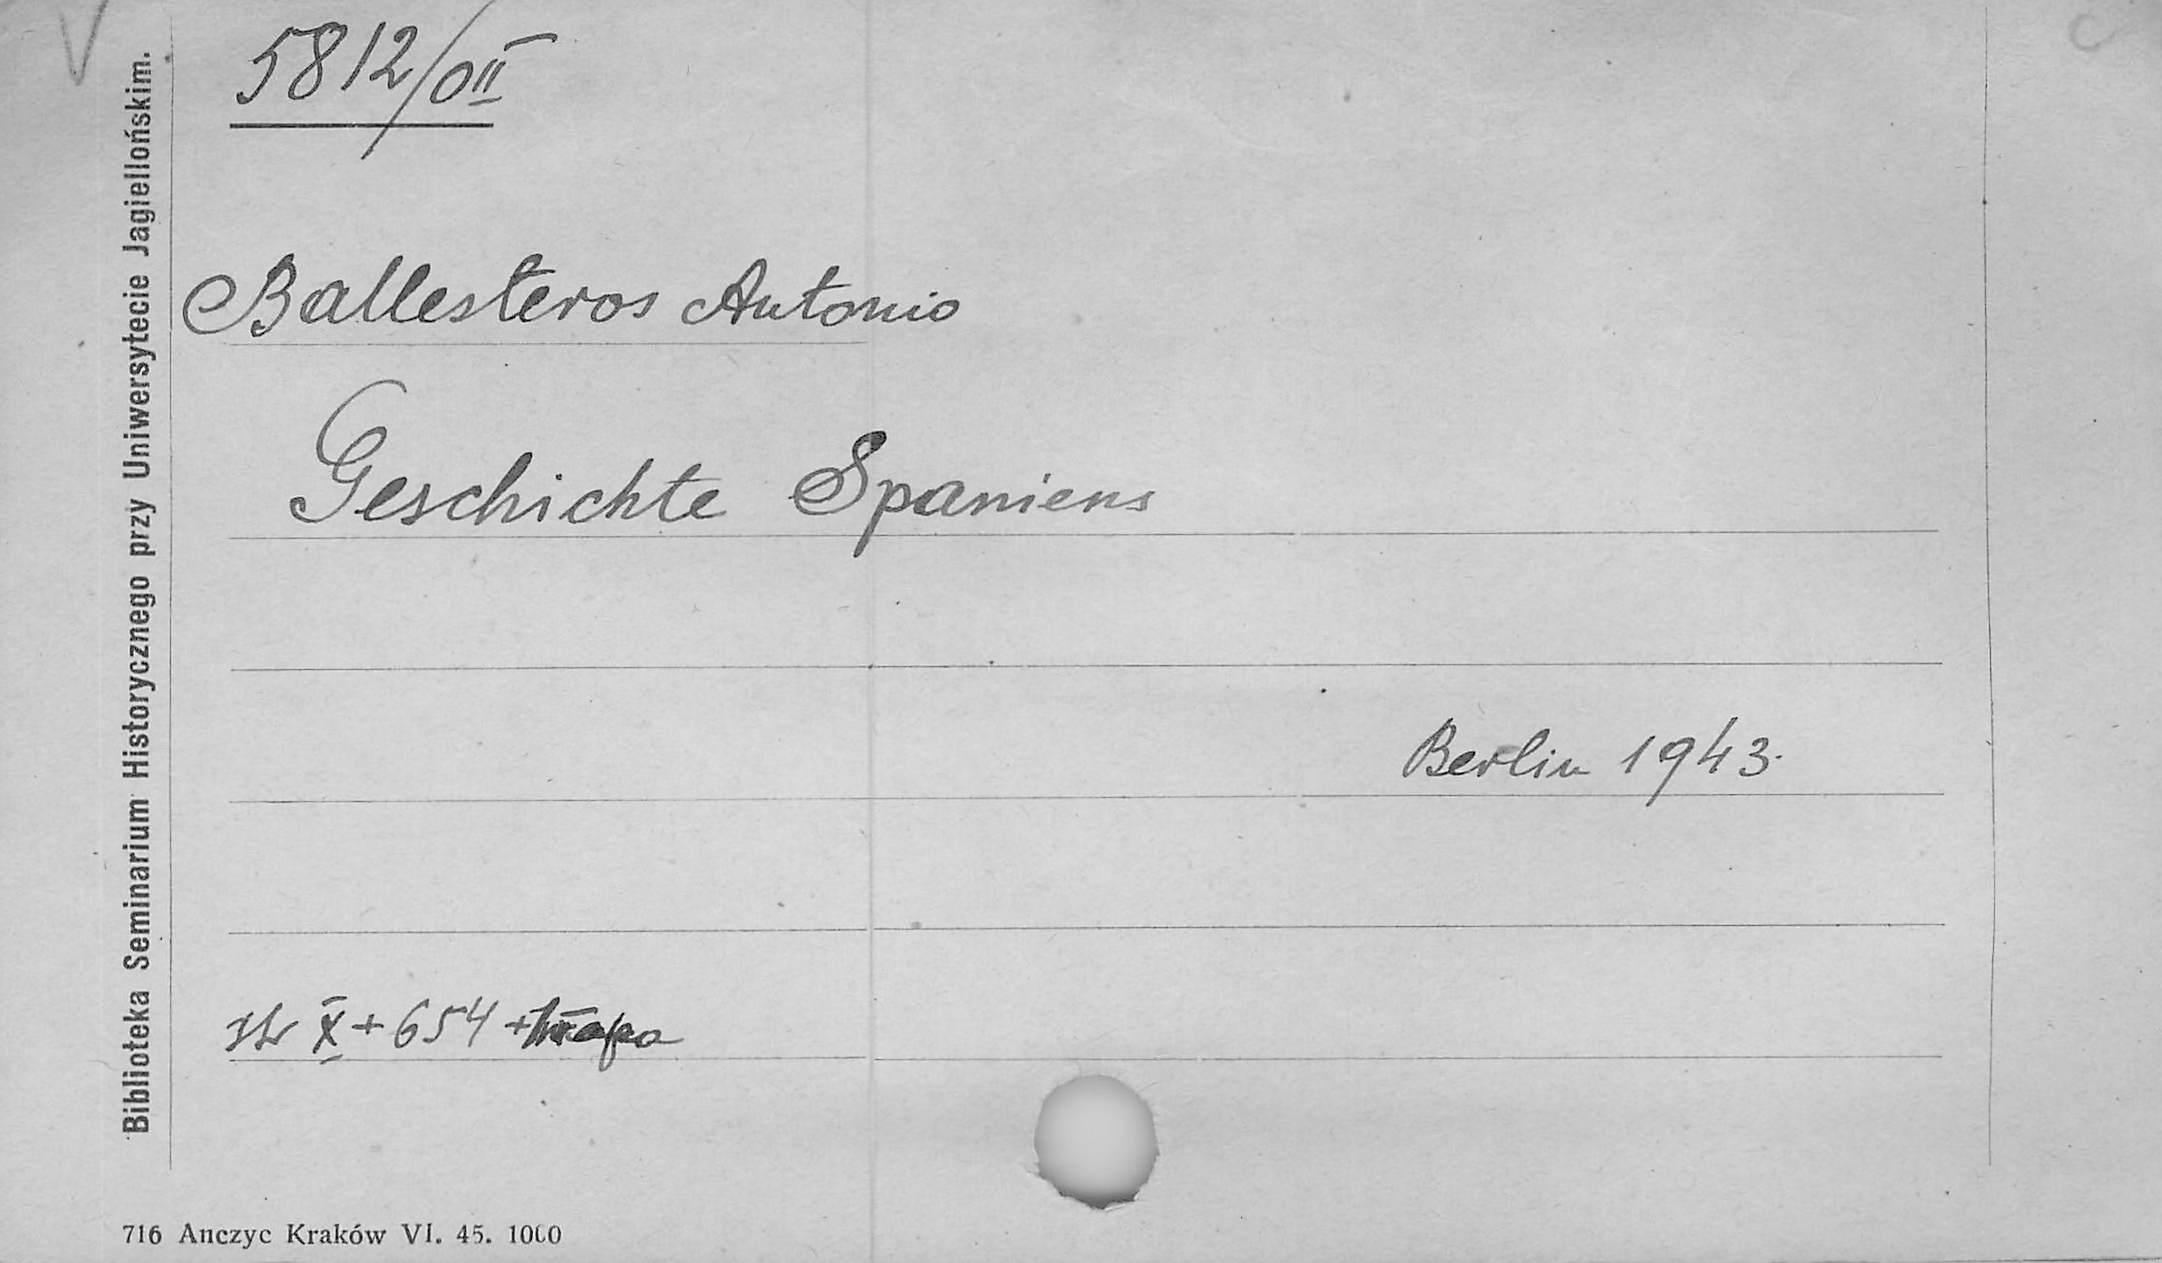 5812/OII
Ballesteros Antonio
Geschichte Spaniens
Berlin 1943.
str X + 654 + mapa
Biblioteka Seminarium Historycznego przy Uniwersytecie Jagiellońskim.
716 Anczyc Kraków VI. 45. 1000